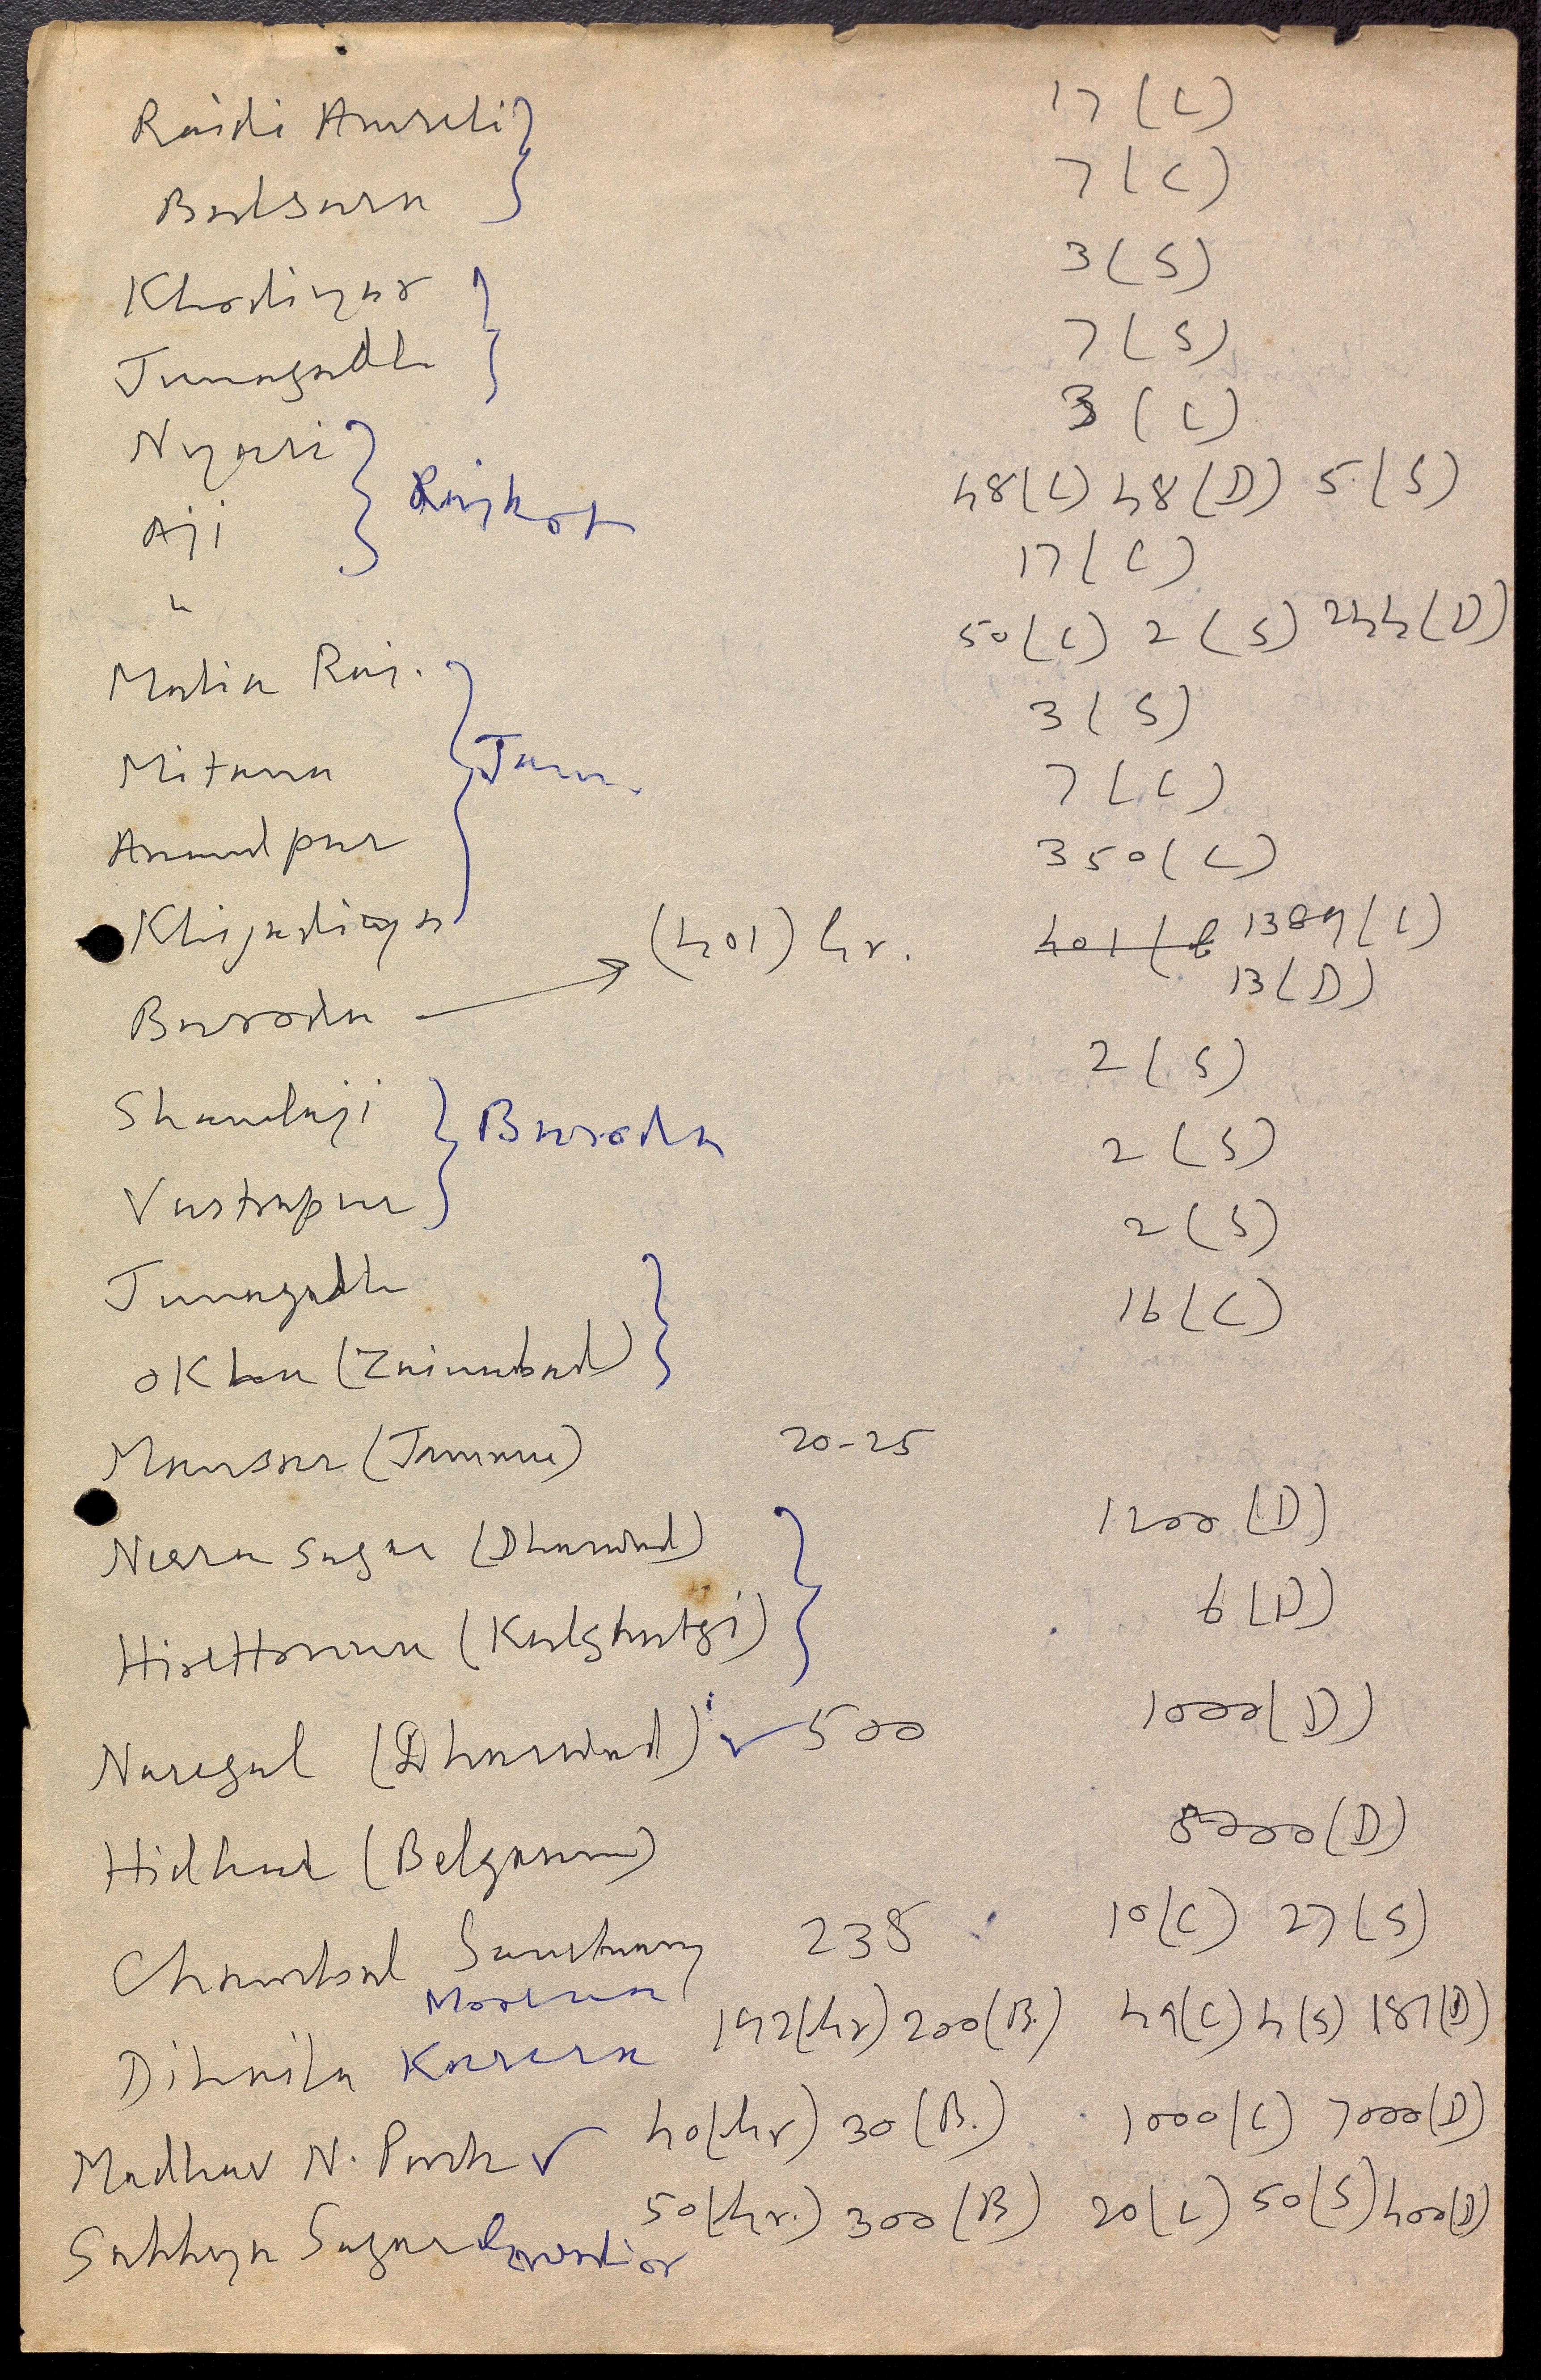 Raidi Amreli } 17 (C)
Balsara 7 (C)
Khodiyar } 3 (S)
Junagadh 7 (S)
Nyari } Rajkot 3 (C)
Aji 48 (C) 48 (D) 5 (S)
" 17 (C)
Matia Raj. } Jam. 50 (C) 2 (S) 244 (D)
Mitana 3 (S)
Anandpur 7 (C)
Khijadiya 350 (C)
Baroda → (401) hr. 401 1389 (C)
13 (D)
Shamlaji } Baroda 2 (S)
Vastrapur 2 (S)
Junagadh } 2 (S)
Okha (Zainabad) 16 (C)
Mansar (Jammu) 20-25
Neera Sagar (Dharwad) } 1200 (D)
HireHonna (Kalghatgi) 6 (D)
Naregal (Dharwad) ✓ 500 1000 (D)
Hidkal (Belgaum) 8000 (D)
Chambal Sanctuary 238 10 (C) 27 (S)
Morena
Dihaila Karera 142 (hr) 200 (B.) 49 (C) 4 (S) 187 (D)
Madhav N. Park ✓ 40 (hr) 30 (B.) 1000 (C) 7000 (D)
Sakhya Sagar Gwalior 50 (hr.) 300 (B) 20 (C) 50 (S) 400 (D)